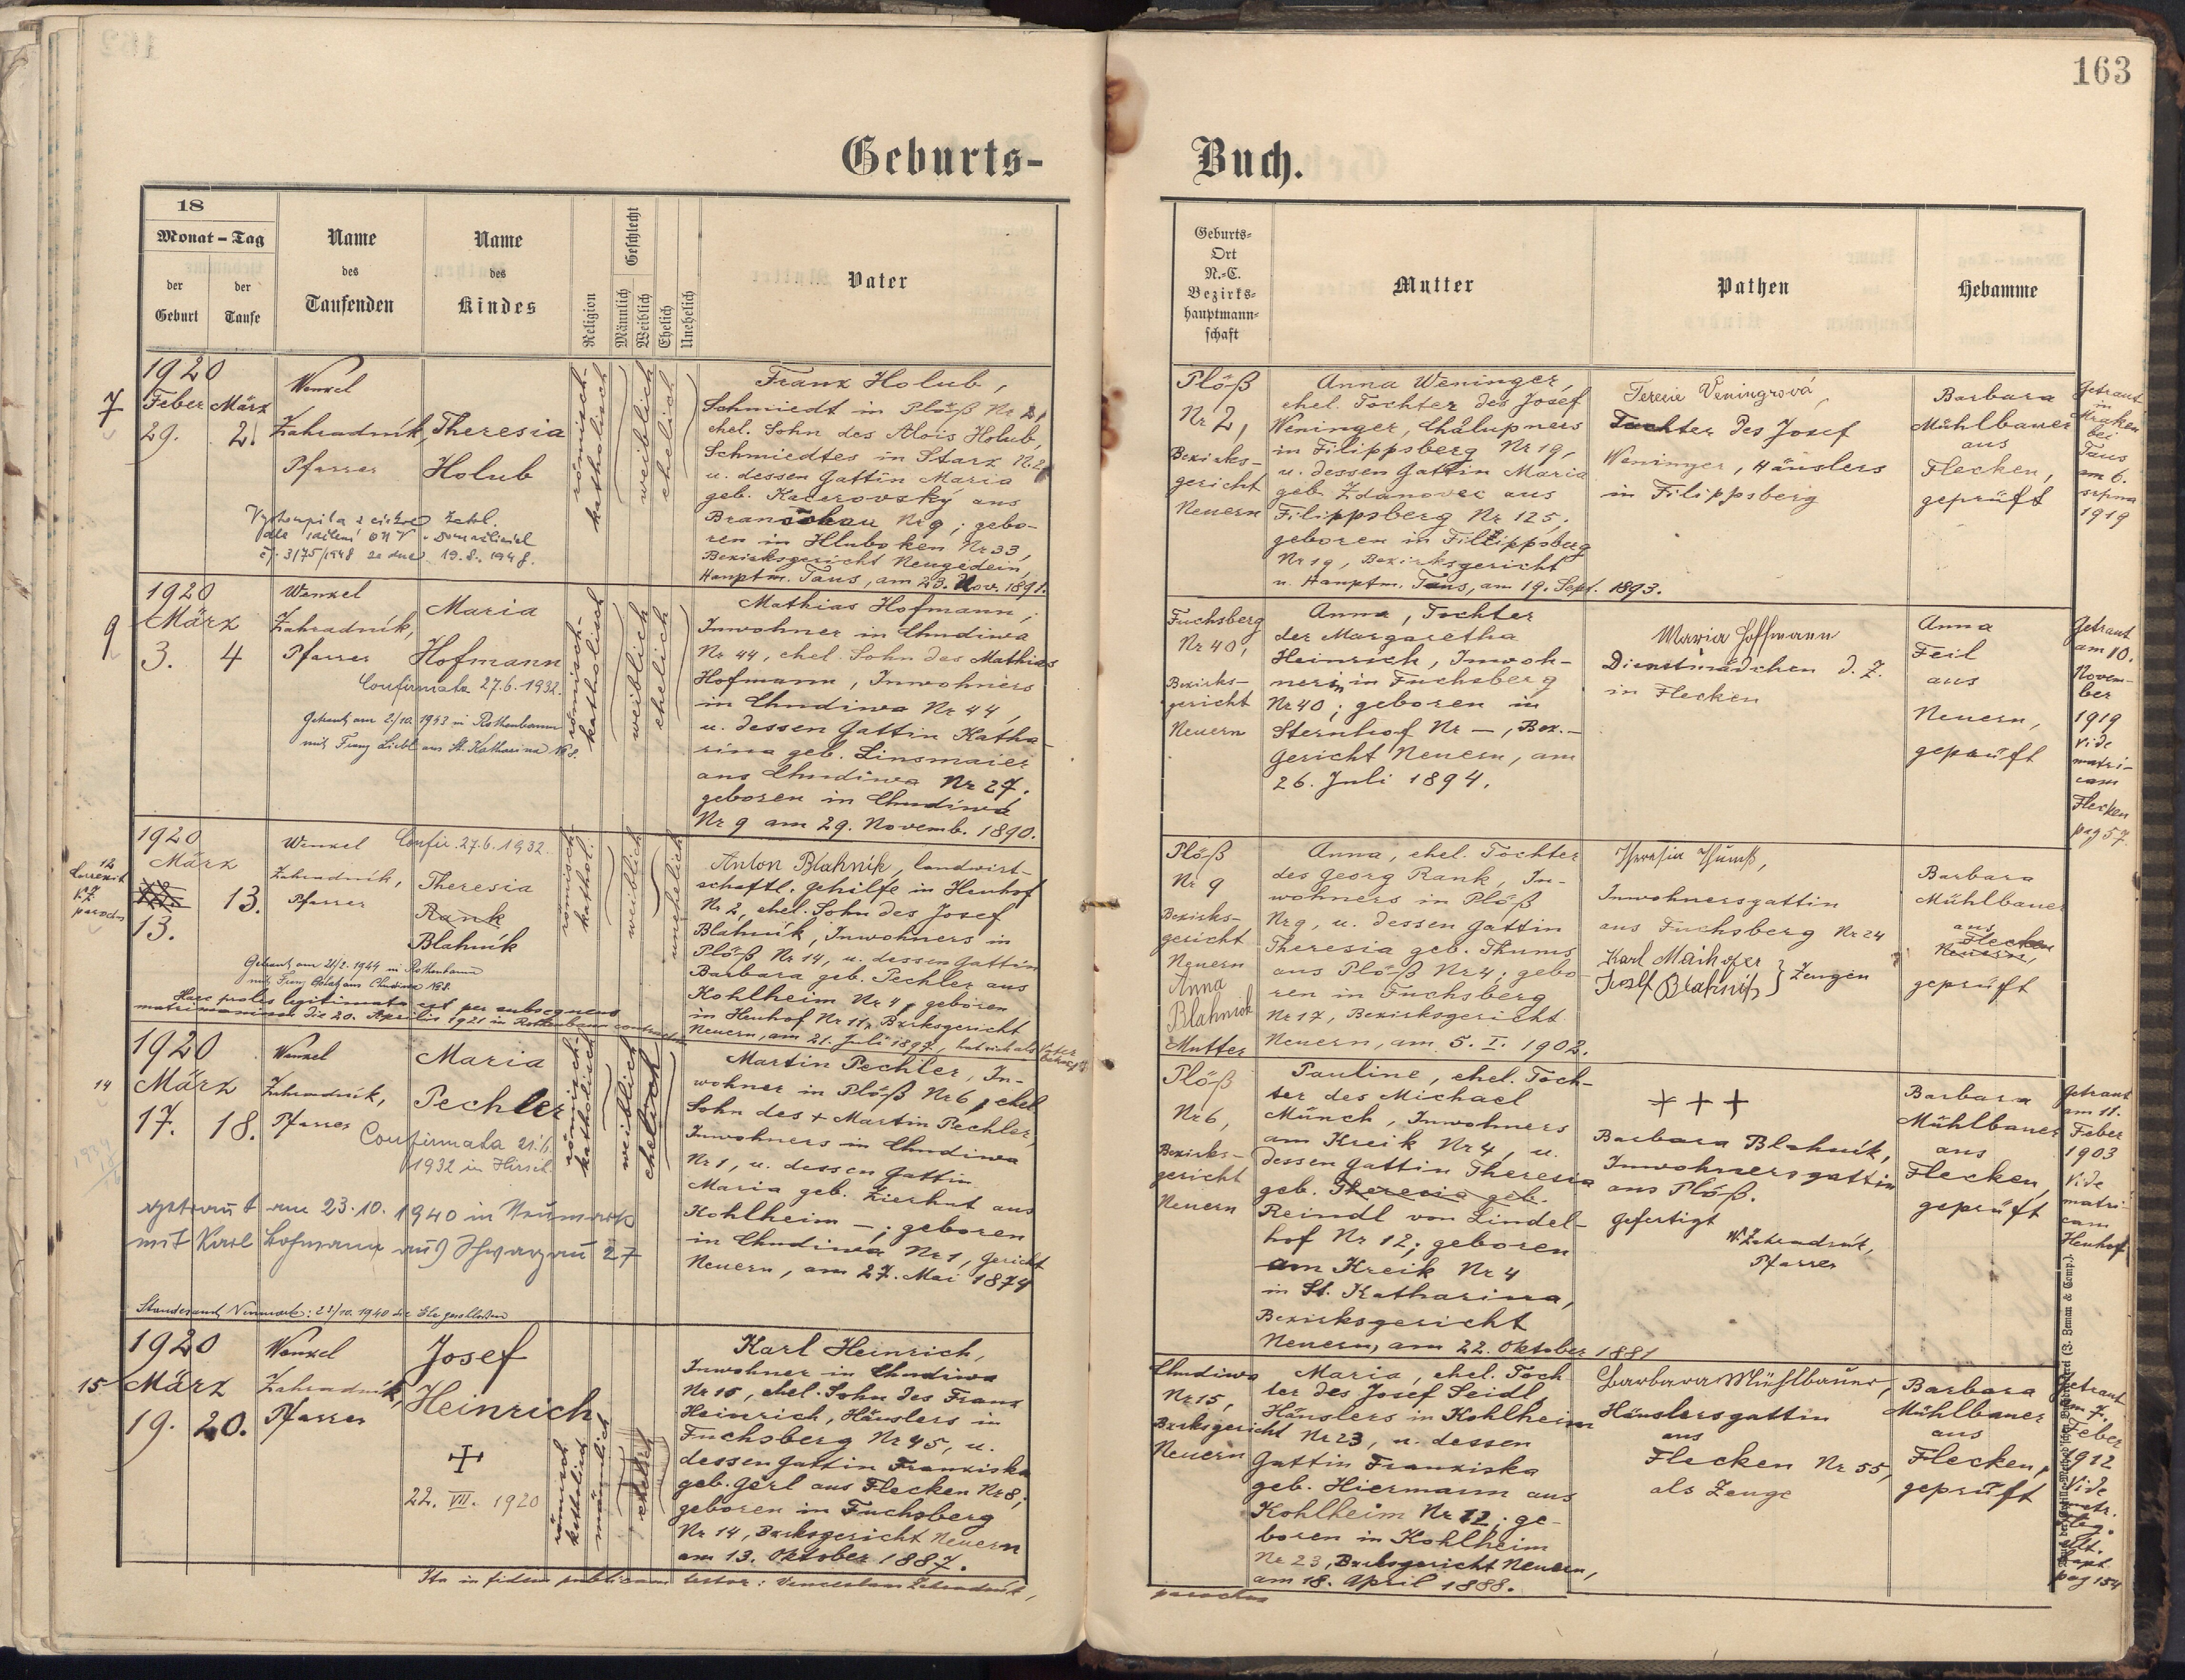 163
Geburts-
Buch.
18
Monat - Tag
der
Geburt
der
Taufe
Name
des
Taufenden
Name
des
Kindes
Religion
Geschlecht
Männlich
Weiblich
Ehelich
Unehelich
Vater
Geburts-
Ort
N.-C.
Bezirks-
hauptmann-
schaft
Mutter
Pathen
Hebamme
7
1920
Feber März
29. 2.
Wenzel
Zahradník,
Pfarrer
Theresia
Holub
römisch-
katholisch
weiblich
ehelich
Franz Holub,
Schmiedt in Plöß Nr 2,
ehel. Sohn des Alois Holub,
Schmiedtes in Starz N. 2
u. dessen Gattin Maria
geb. Kacerovský aus
Branschau Nr 9; gebo-
ren in Hluboken Nr 33,
Bezirksgericht Neugedein,
Hauptm. Taus, am 23. Nov. 1891.
Vystoupila z církve
čj. 3175/1948 ze dne 19.8.1948.
Plöß
Nr 2,
Bezirks-
gericht
Neuern
Anna Weninger,
ehel. Tochter des Josef
Weninger, Chalupners
in Filippsberg Nr 19,
u. dessen Gattin Maria
geb. Zdanovec aus
Filippsberg Nr 125;
geboren in Filippsberg
Nr 19, Bezirksgericht
u. Hauptm. Taus, am 19. Sept. 1893.
Terezie Veningrová,
Tochter des Josef
Weninger, Häuslers
in Filippsberg
Barbara
Mühlbauer
aus
Flecken,
geprüft
Getraut
in
Kraken
bei
Taus
am 6.
srpna
1919
9
1920
März
3. 4
Wenzel
Zahradník,
Pfarrer
Maria
Hofmann
Confirmata 27.6.1932.
Getraut am 2/10. 1943 in Rothenbaum
mit Franz Liebl aus St. Katharina N 8.
römisch-
katholisch
weiblich
ehelich
Mathias Hofmann,
Inwohner in Chudiwa
Nr 44, ehel. Sohn des Mathias
Hofmann, Inwohners
in Chudiwa Nr 44,
u. dessen Gattin Katha-
rina geb. Linsmaier
aus Chudiwa Nr 27;
geboren in Chudiwa
Nr 9 am 29. Novemb. 1890.
Fuchsberg
Nr 40,
Bezirks-
gericht
Neuern
Anna, Tochter
der Margaretha
Heinrich, Inwoh-
nerin in Fuchsberg
Nr 40; geboren in
Sternhof Nr —, Bez.-
Gericht Neuern, am
26. Juli 1894.
Maria Hoffmann
Dienstmädchen d. Z.
in Flecken
Anna
Feil
aus
Neuern,
geprüft
Getraut
am 10.
Novem-
ber
1919
Vide
matri-
cam
Flecken
pag 57
12
1920
März
13.
13.
Wenzel
Zahradník,
Pfarrer
Confir. 27.6.1932.
Theresia
Rank
Blahník
Getraut am 21/2. 1944 in Rothenbaum
Haec proles legitimata est per subsequens
matrimonium die 20. Aprilis 1921 in Rothenbaum contractum
römisch-
kathol.
weiblich
unehelich
Anton Blahník, landwirt-
schaftl. Gehilfe in Heuhof
Nr 2, ehel. Sohn des Josef
Blahník, Inwohners in
Plöß Nr 14, u. dessen Gattin
Barbara geb. Pechler aus
Kohlheim Nr 4, geboren
in Heuhof Nr 11, Bzrksgericht
Neuern, am 21. Juli 1897, hat sich als Vater
bekannt
Plöß
Nr 9
Bezirks-
gericht
Neuern
Anna
Blahník
Mutter
Anna, ehel. Tochter
des Georg Rank, In-
wohners in Plöß
Nr 9, u. dessen Gattin
Theresia geb. Thums
aus Plöß Nr 4; gebo-
ren in Fuchsberg
Nr 17, Bezirksgericht
Neuern, am 5. I. 1902.
Theresia Thums,
Inwohnersgattin
aus Fuchsberg Nr 24
Karl Maihofer
Josef Blahník } Zeugen
Barbara
Mühlbauer
aus
Flecken
Neuern,
geprüft
14
1920
März
17. 18.
Wenzel
Zahradník,
Pfarrer
Maria
Pechler
Confirmata 21./6
1932 in Hirsch.
getraut am 23.10. 1940 in Neumark
mit Karl Hofmann aus Schwarzau 27
Standesamt Neumark: 23/10. 1940 die Ehe geschlossen
römisch-
katholisch
weiblich
ehelich
Martin Pechler, In-
wohner in Plöß Nr 6, ehel.
Sohn des + Martin Pechler,
Inwohners in Chudiwa
Nr 1, u. dessen Gattin
Maria geb. Zierhut aus
Kohlheim —; geboren
in Chudiwa Nr 1, Gericht
Neuern, am 27. Mai 1874
Plöß
Nr 6,
Bezirks-
gericht
Neuern
Pauline, ehel. Toch-
ter des Michael
Münch, Inwohners
am Kreik Nr 4, u.
dessen Gattin Theresia
geb. Theresia geb.
Reindl von Lindel-
hof Nr 12; geboren
am Kreik Nr 4
in St. Katharina,
Bezirksgericht
Neuern, am 22. Oktober 1881
+ + +
Barbara Blahník,
Inwohnersgattin
aus Plöß.
Gefertigt
W. Zahradník,
Pfarrer
Barbara
Mühlbauer
aus
Flecken,
geprüft
Getraut
am 11.
Feber
1903
Vide
matri-
cam
Heuhof
15
1920
März
19. 20.
Wenzel
Zahradník,
Pfarrer
Josef
Heinrich
+
22. VII. 1920
römisch
katholisch
männlich
ehelich
Karl Heinrich,
Inwohner in Chudiwa
Nr 15, ehel. Sohn des Franz
Heinrich, Häuslers in
Fuchsberg Nr 45, u.
dessen Gattin Franziska
geb. Gerl aus Flecken Nr 8;
geboren in Fuchsberg
Nr 14, Bzrksgericht Neuern
am 13. Oktober 1887.
Chudiwa
Nr 15,
Bzrksgericht
Neuern
Maria, ehel. Toch-
ter des Josef Seidl,
Häuslers in Kohlheim
Nr 23, u. dessen
Gattin Franziska
geb. Hiermann aus
Kohlheim Nr 12; ge-
boren in Kohlheim
Nr 23, Bzrksgericht Neuern,
am 18. April 1888.
Barbara Mühlbauer,
Häuslersgattin
aus
Flecken Nr 55,
als Zeuge
Barbara
Mühlbauer
aus
Flecken,
geprüft
Getraut
am 7.
Feber
1912
Vide
matr.
pag 154
Ita in fidem publicam testor: Venceslaus Zahradník,
parochus